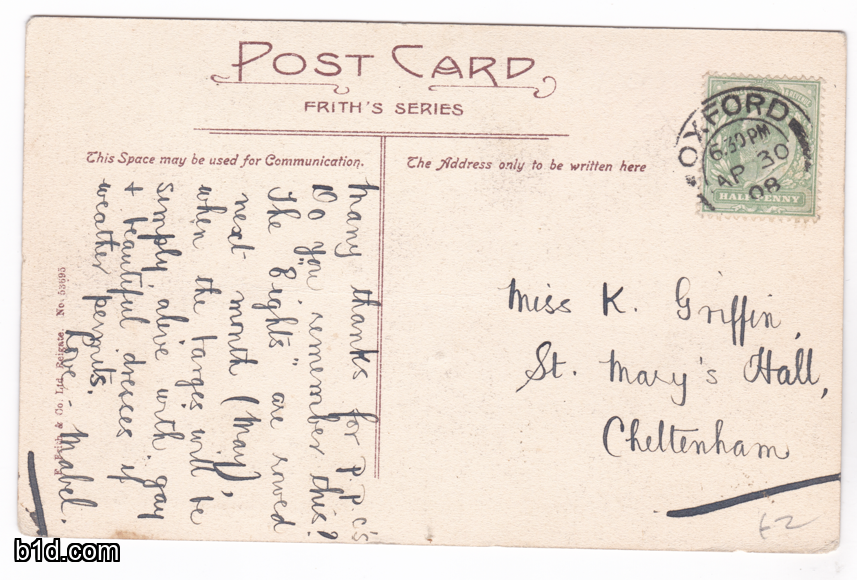 POST CARD
FRITH'S SERIES
This Space may be used for Communication.
The Address only to be written here
OXFORD
6.30 PM
AP 30
08
HALFPENNY
Many thanks for P.P.C's
Do you remember this?
The "Eights" are rowed
next month (May),
when the barges will be
simply alive with gay
& beautiful dresses if
weather permits.
Love - Mabel.
Miss K. Griffin,
St. Mary's Hall,
Cheltenham
F. Frith & Co. Ltd. Reigate. No. 53695
£2
b1d.com